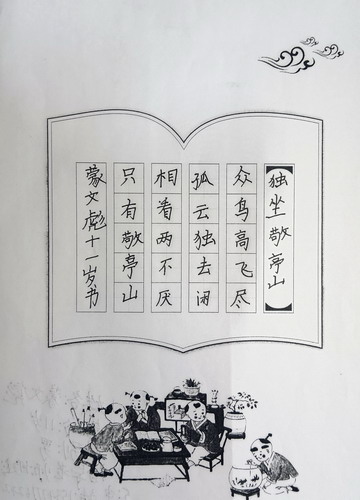 独坐敬亭山
众鸟高飞尽
孤云独去闲
相看两不厌
只有敬亭山
蒙文彪十一岁书